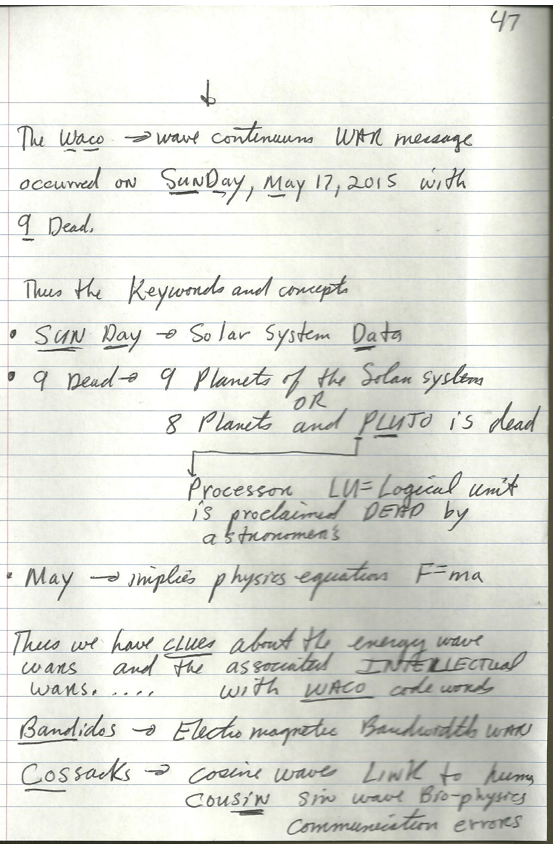 47
The Waco → wave continuums WAR message
occurred on SunDay, May 17, 2015 with
9 Dead.
Thus the Keywords and concepts
• SUN Day → Solar System Data
• 9 Dead → 9 Planets of the Solar system
OR
8 Planets and PLUTO is dead
Processor LU = Logical unit
is proclaimed DEAD by
astronomers
• May → implies physics equation F=ma
Thus we have clues about the energy wave
wars and the associated INTELLECTUAL
wars..... with WACO code words
Bandidos → Electromagnetic Bandwidth WAR
Cossacks → cosine waves LINK to human
COUSIN sin wave Bio-physics
Communication errors